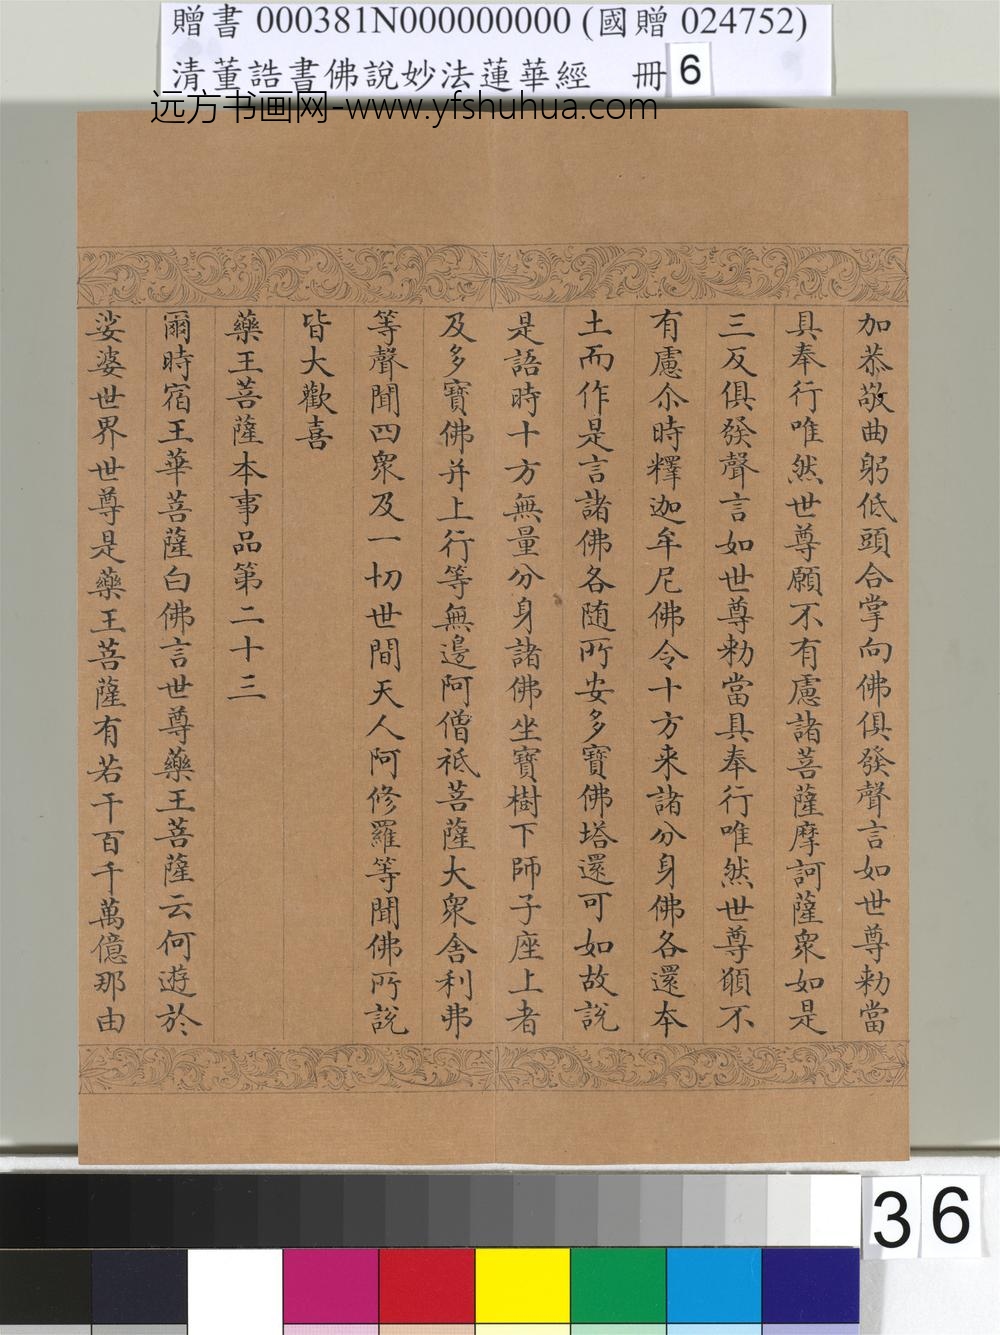 贈書 000381N000000000 (國贈 024752)
清董誥書佛說妙法蓮華經 冊 6
远方书画网-www.yfshuhua.com
加恭敬曲躬低頭合掌向佛俱發聲言如世尊勅當
具奉行唯然世尊願不有慮諸菩薩摩訶薩衆如是
三反俱發聲言如世尊勅當具奉行唯然世尊願不
有慮尒時釋迦牟尼佛令十方来諸分身佛各還本
土而作是言諸佛各随所安多寶佛塔還可如故説
是語時十方無量分身諸佛坐寶樹下師子座上者
及多寶佛并上行等無邊阿僧祇菩薩大衆舎利弗
等聲聞四衆及一切世間天人阿修羅等聞佛所説
皆大歡喜
藥王菩薩本事品第二十三
爾時宿王華菩薩白佛言世尊藥王菩薩云何遊於
娑婆世界世尊是藥王菩薩有若干百千萬億那由
36